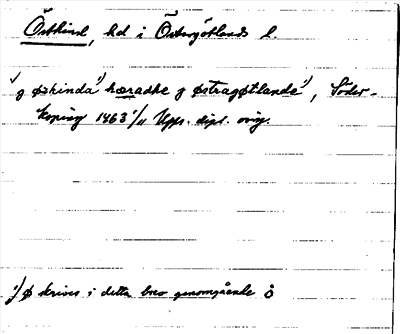 Östkind, hd i Östergötlands l.
"g øzkinda¹⁾ hæradhe g østragøtlande", Söder-
köping 1463 1/11 Upps. dipl. orig.
¹⁾ ø skrives i detta brev genomgående ö